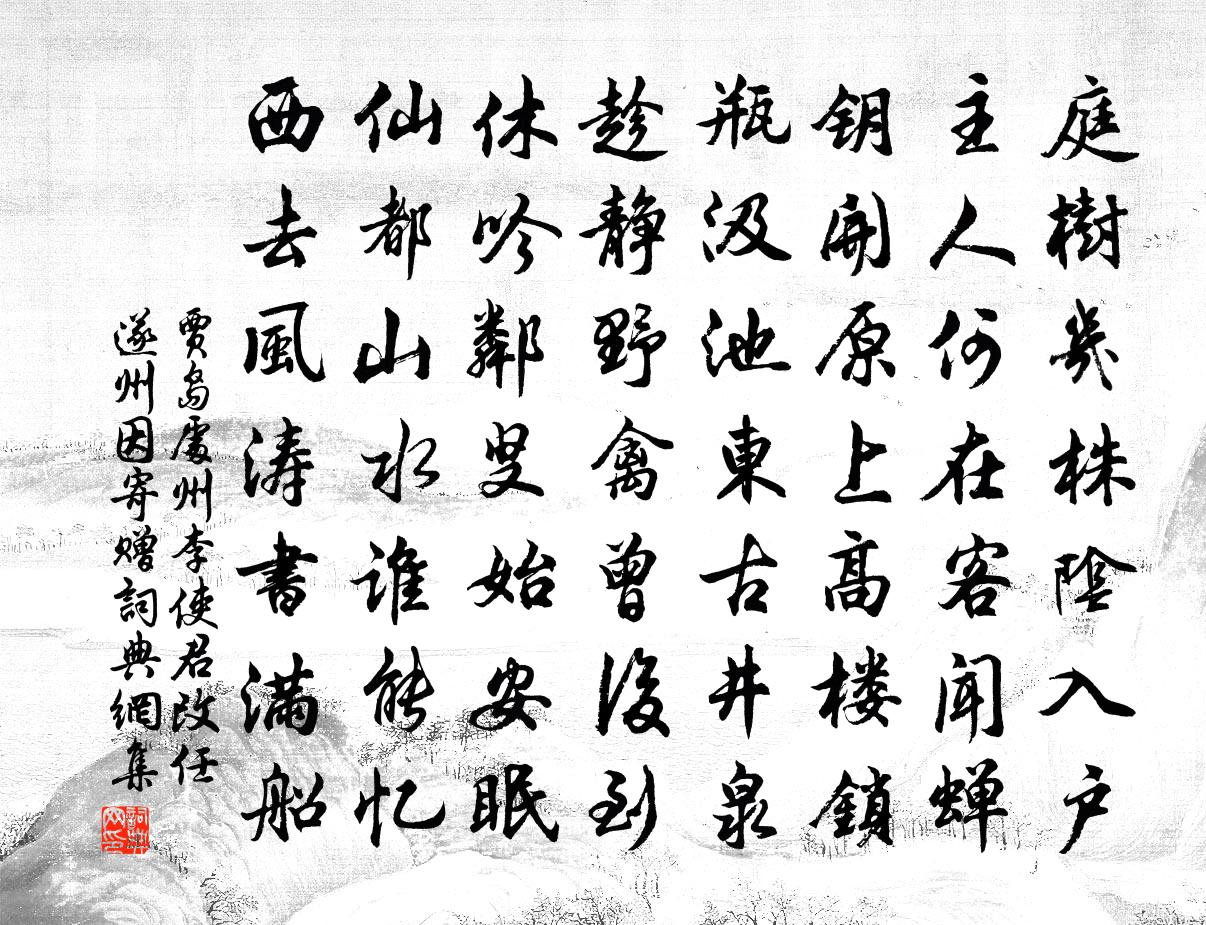 庭樹幾株陰入户
主人何在客闻蝉
钥開原上高楼鎖
瓶汲池東古井泉
趁静野禽曾後到
休吟鄰叟始安眠
仙都山水谁能忆
西去風涛書满船
贾島處州李使君改任
遂州因寄贈詞典網集